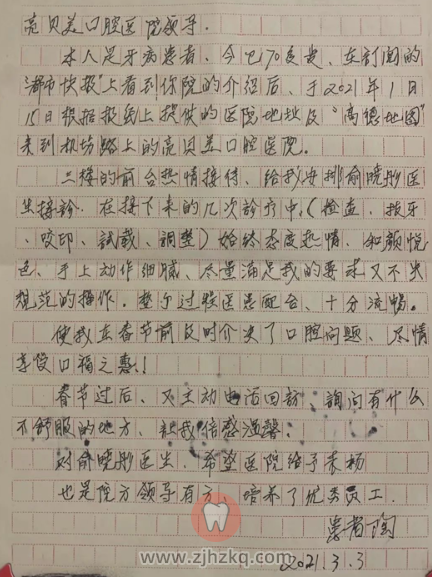 亮贝美口腔医院领导:
本人是牙病患者、今已70岁是、在订阅的
"都市快报"上看到你院的介绍后、于2021年1月
15日根据报纸上提供的医院地址及"高德地图"
来到机场路上的亮贝美口腔医院。
二楼的前台热情接待、给我安排俞晓彤医
生接诊、在接下来的几次诊疗中、(检查、拔牙
、咬印、试戴、调整)始终态度热情、和颜悦
色、手上动作细腻、尽量满足我的要求又不失
规范的操作。整个过程医患配合、十分流畅。
使我在春节前及时介决了口腔问题、尽情
享受口福之惠!
春节过后、又主动电话回访、询问有什么
不舒服的地方、让我倍感温馨。
对俞晓彤医生、希望医院给予表扬
也是院方领导有方、培养了优秀员工.
患者陶
2021.3.3
www.zjhzkq.com